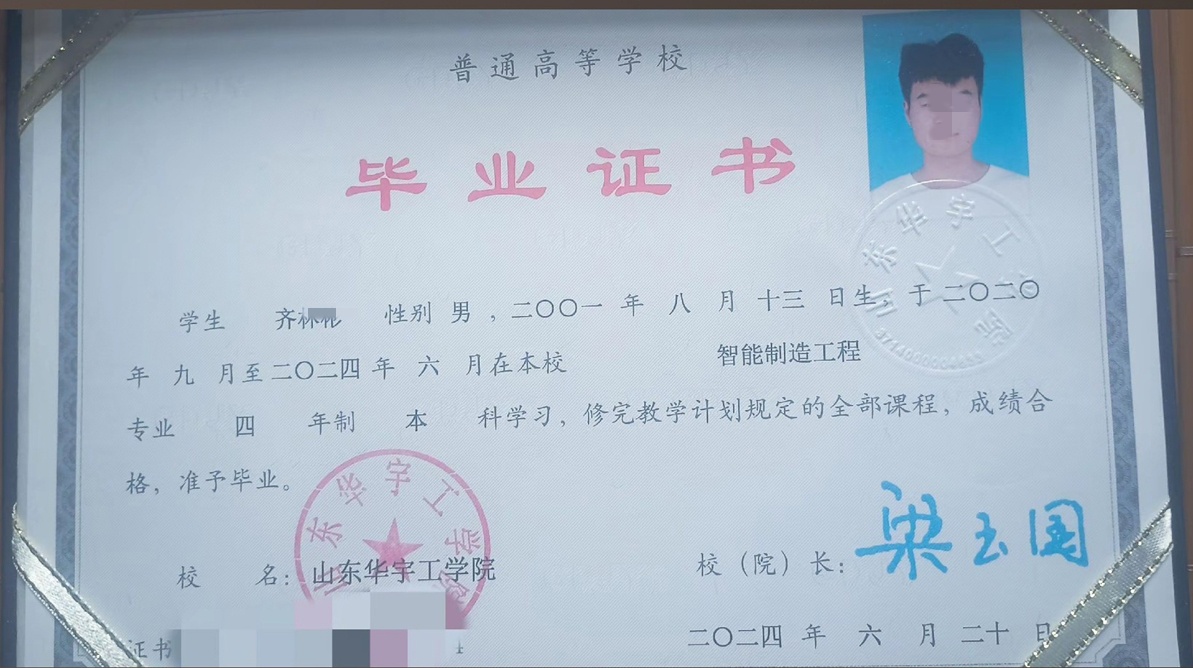 普通高等学校
毕业证书
学生 齐 性别 男，二〇〇一 年 八 月 十三 日生，于 二〇二〇
年 九 月至 二〇二四 年 六 月在本校 智能制造工程
专业 四 年制 本 科学习，修完教学计划规定的全部课程，成绩合
格，准予毕业。
山东华宇工学院
山东华宇工学院
校 名：山东华宇工学院
校（院）长：梁玉国
证书
二〇二四 年 六 月 二十 日